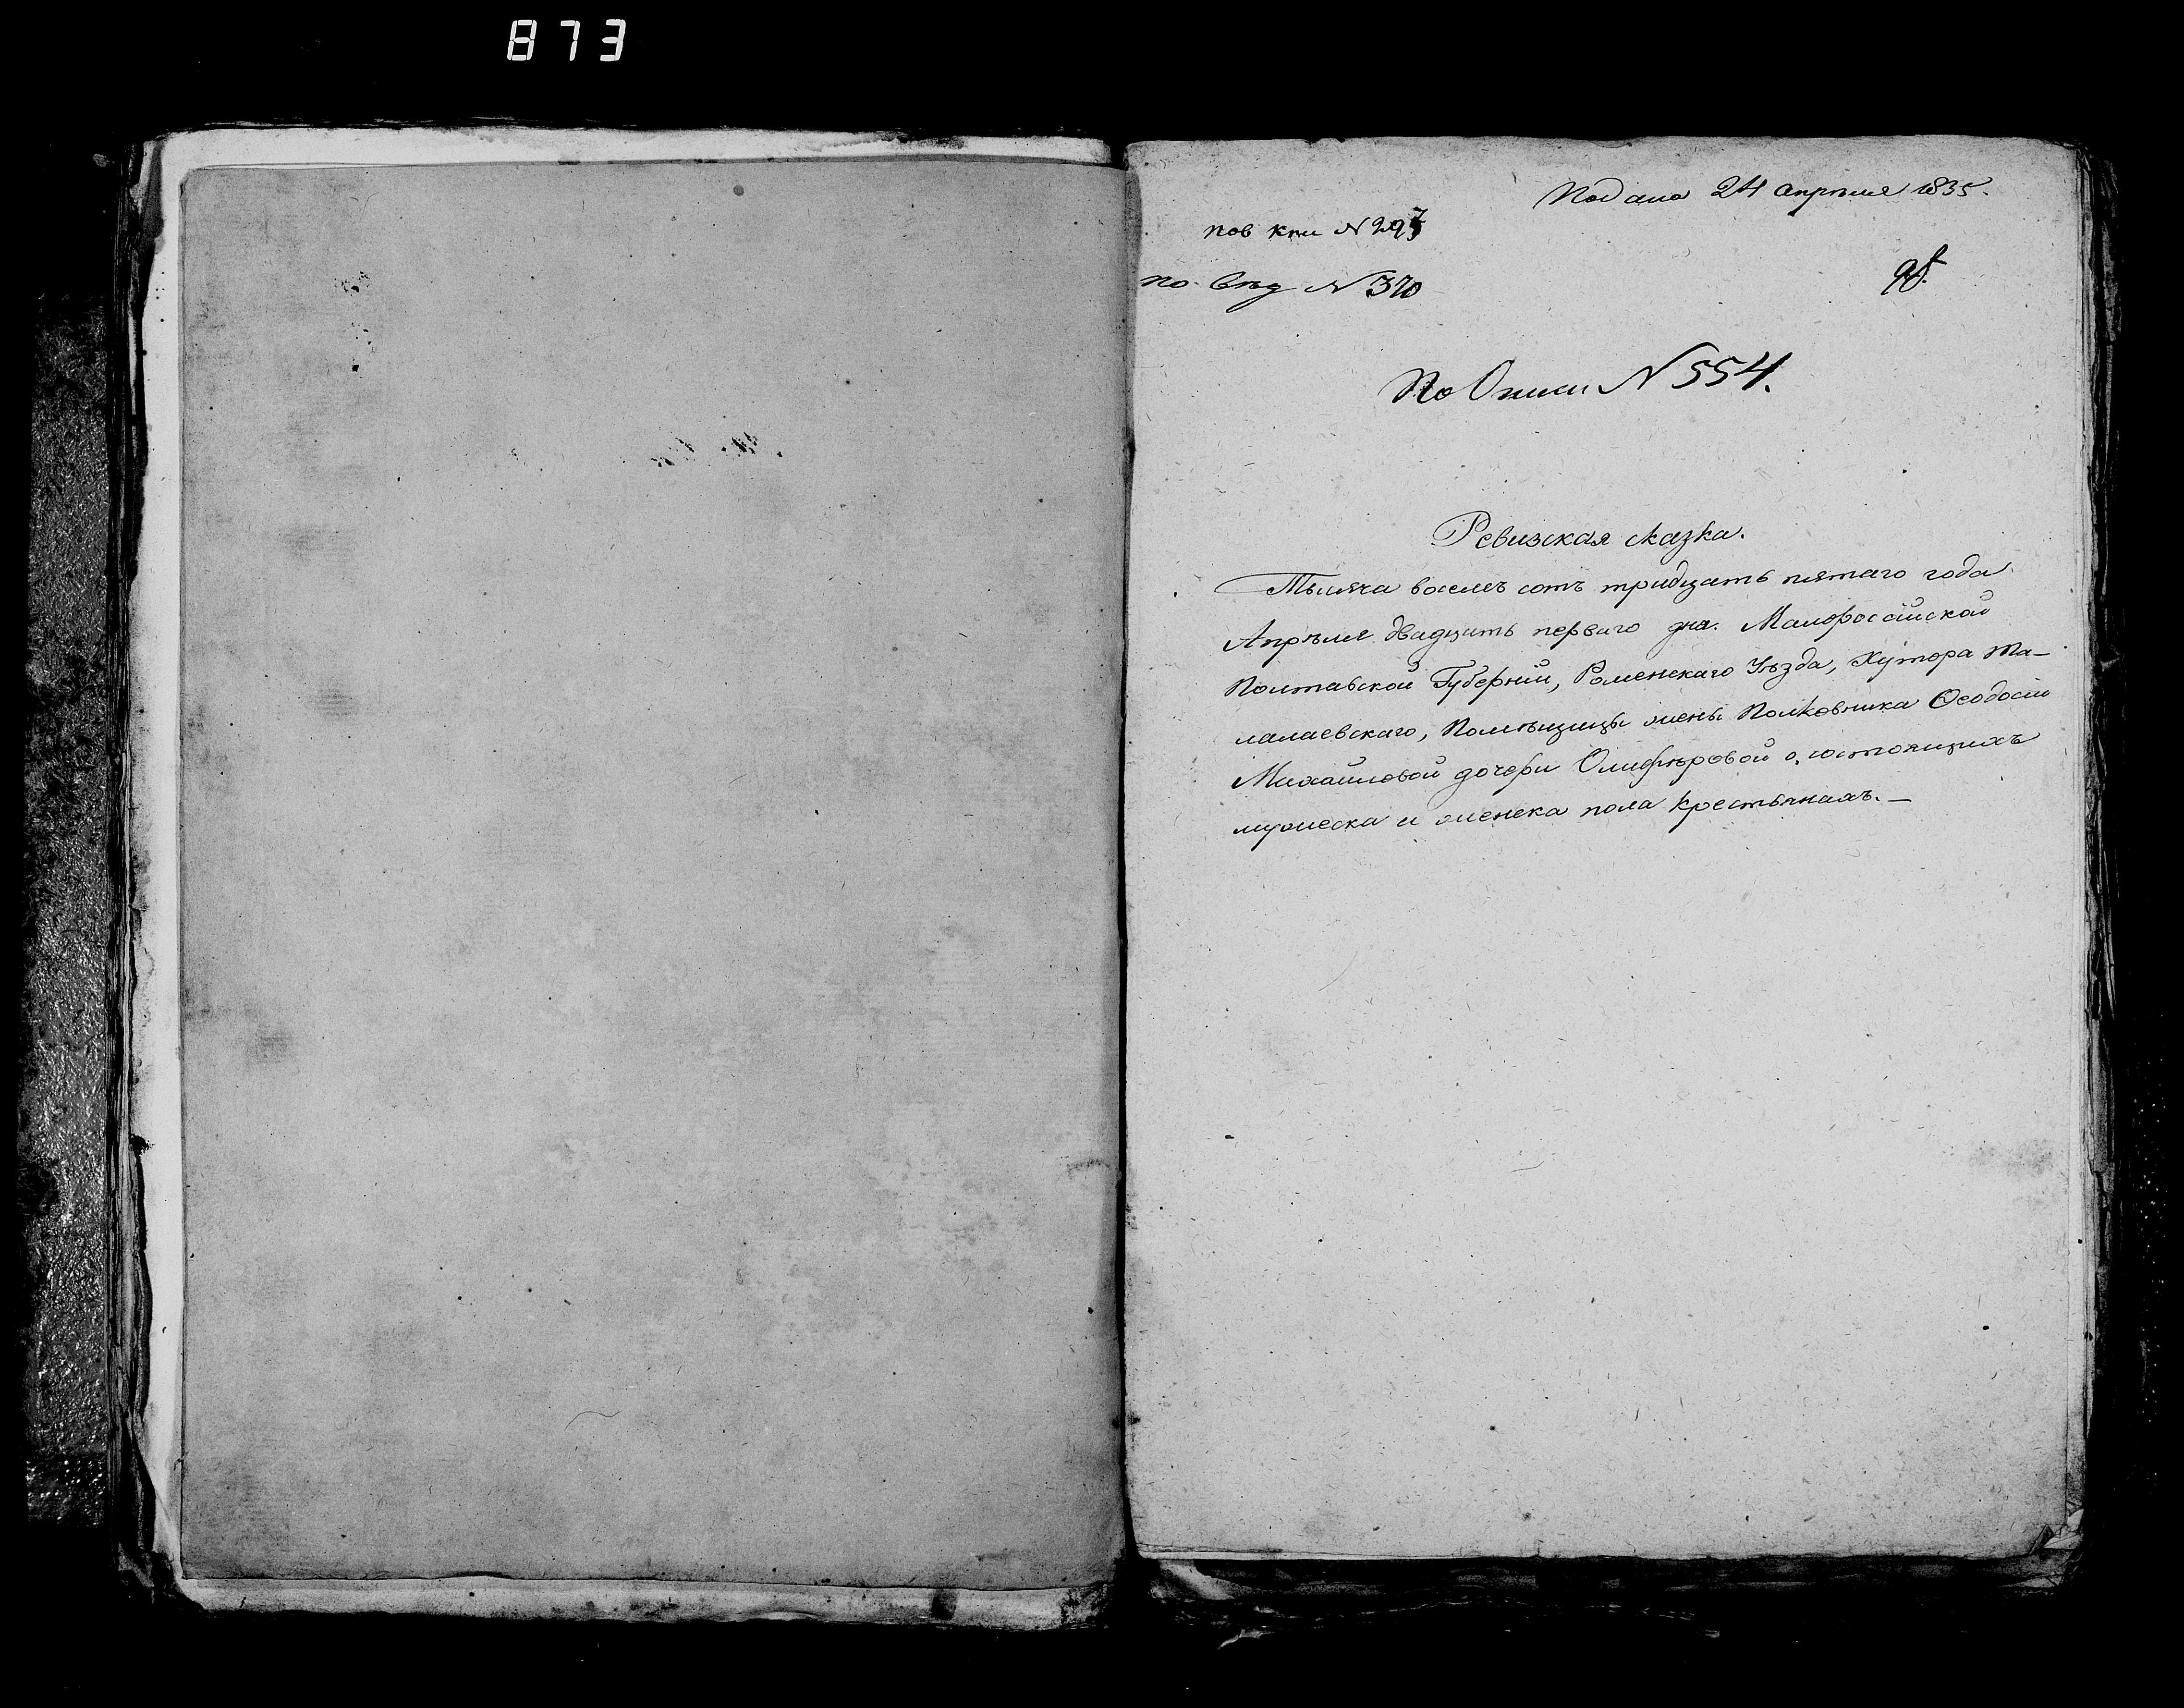 873
Подана 24 апреля 1835.
пов кни N 297
по вѣд N 370
По Описи N 554.
Ревизская сказка.
Тысяча восемъ сотъ тридцать пятаго года
Апрѣля двадцать перваго дня. Малороссійской
Полтавской Губерніи, Роменскаго Уѣзда, Хутора Та-
лалаевскаго, Помѣщицы жены Полковника Ѳеодосіи
Михайловой дочери Олифѣровой о состоящихъ
мужеска и женска пола крестьянахъ.—